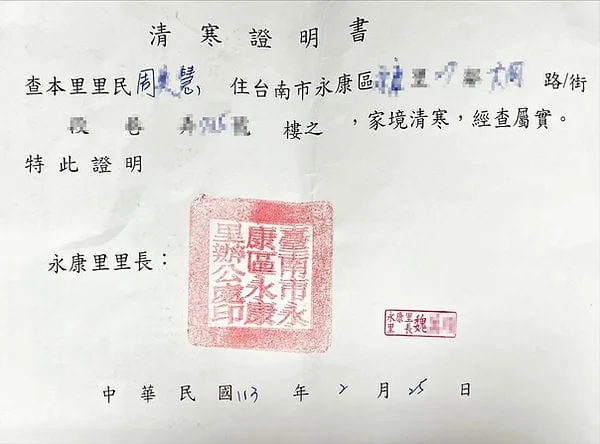 清寒證明書
查本里里民周慧,住台南市永康區里鄰路/街
段巷弄號樓之,家境清寒,經查屬實。
特此證明
永康里里長:
臺南市永康區永康里辦公處印
永康里里長魏
中華民國113年2月25日